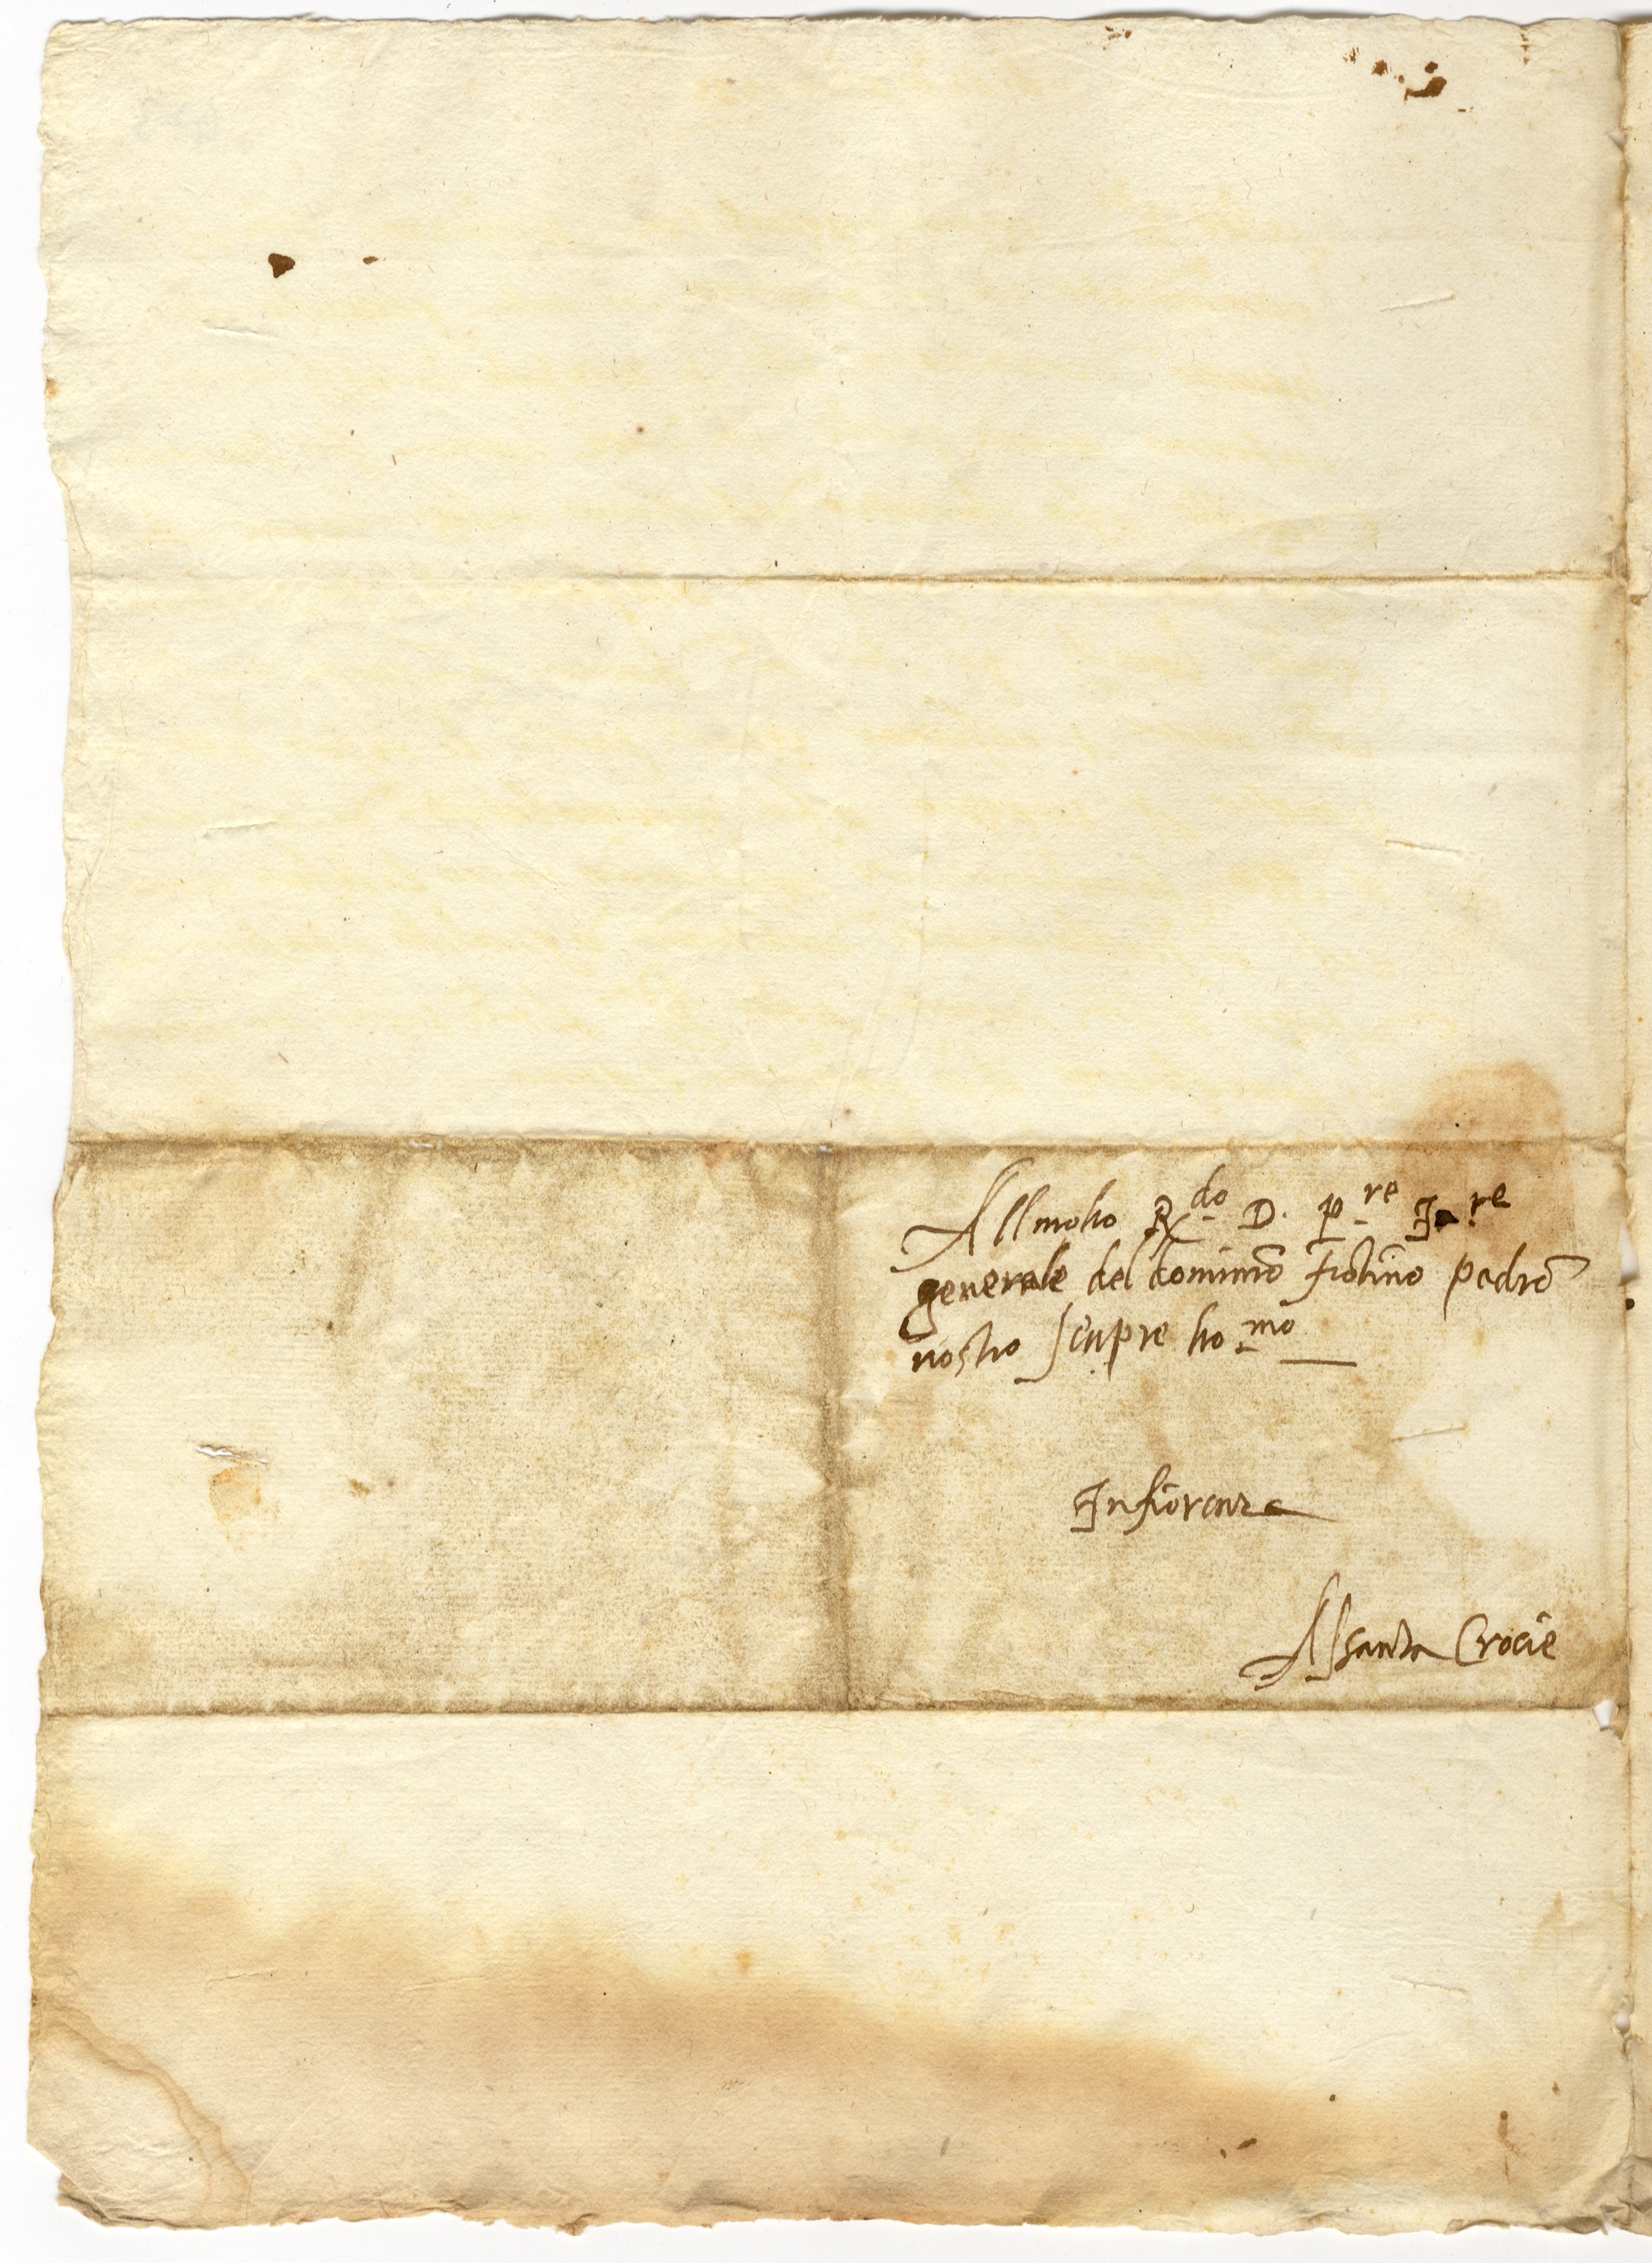 Allmolto R.do D. p.re In.re
generale del dominio fiotino padrō
nostro senpre ho.mo
Infiorenza
Assanta Crocie